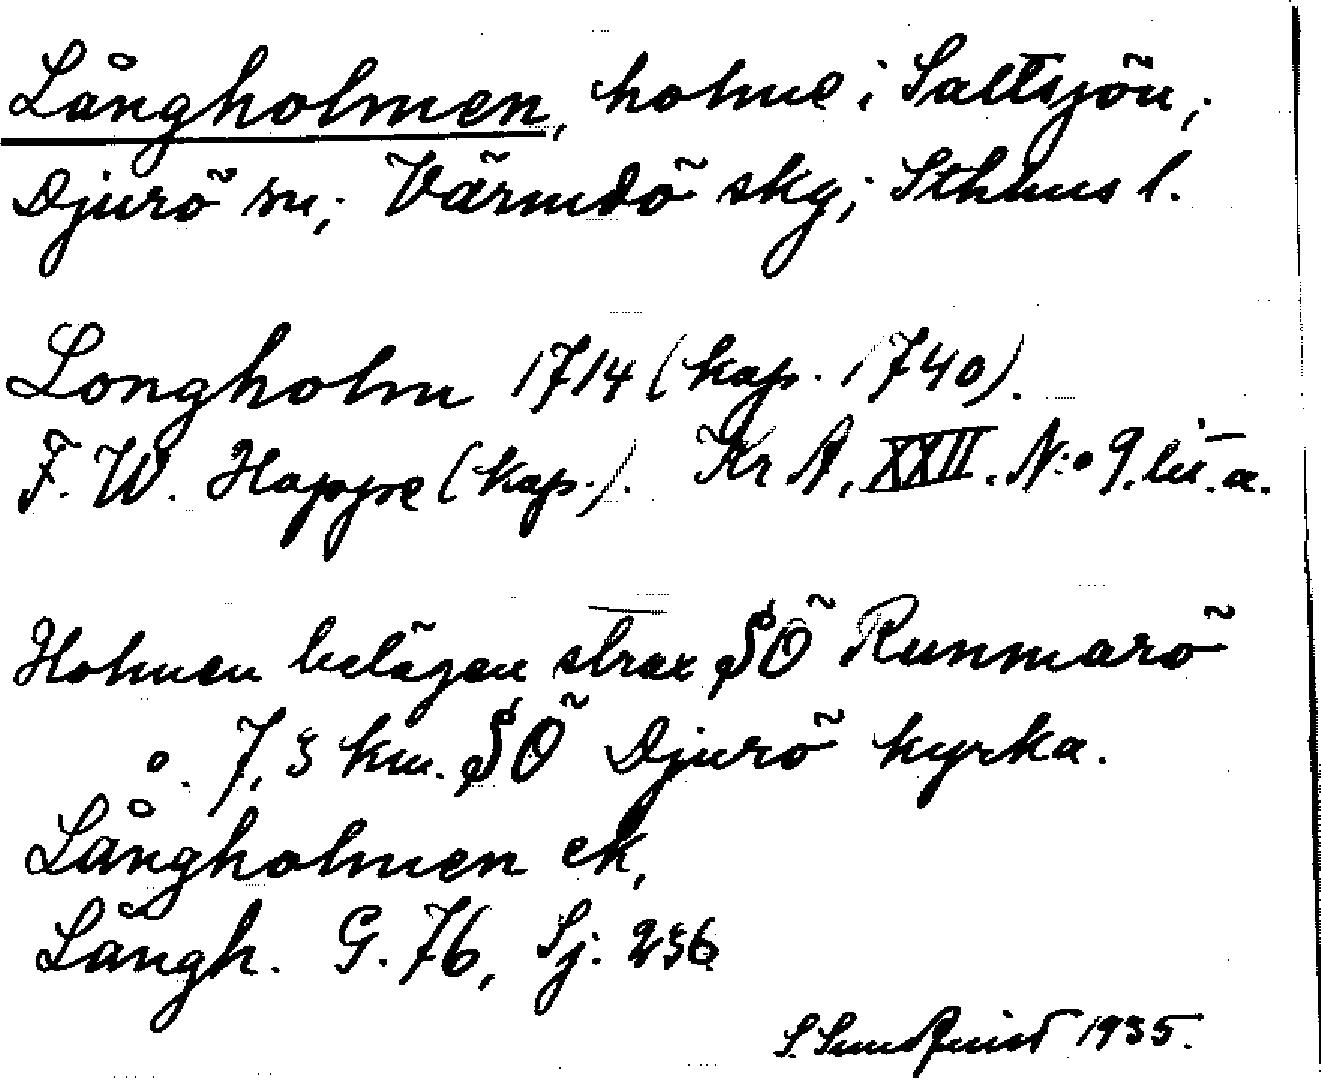 Långholmen, holme i Saltsjön;
Djurö sn; Värmdö skg; Sthms l.
Longholm 1714 (kap. 1740).
F. W. Happe (kap.). Kr A, XXII. N:o 9. lit. a.
Holmen belägen strax SÖ Runmarö
o. 7,3 km. SÖ Djurö kyrka.
Långholmen ek,
Långh. G. 76, Sj. 236
S. Sundquist 1935.